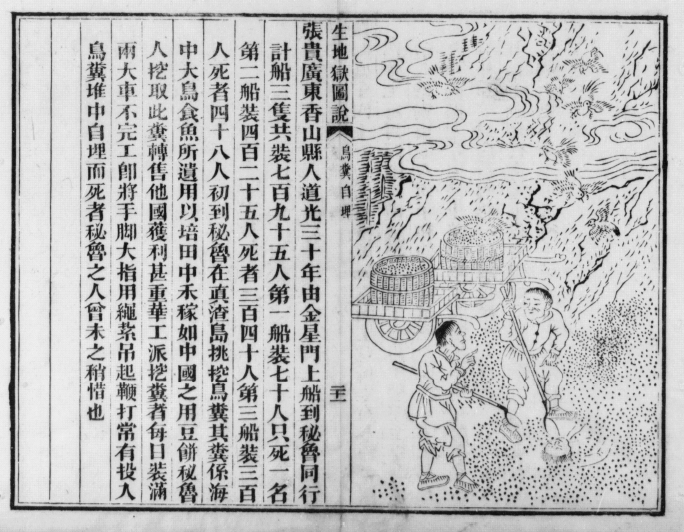 生地獄圖說
鳥糞自埋
二十一
張貴廣東香山縣人道光三十年由金星門上船到秘魯同行
計船三隻共裝七百九十五人第一船裝七十人只死一名
第二船裝四百二十五人死者三百四十人第三船裝三百
人死者四十八人初到秘魯在真渣島挑挖鳥糞其糞係海
中大鳥食魚所遺用以培田中禾稼如中國之用豆餅秘魯
人挖取此糞轉售他國獲利甚重華工派挖糞者每日裝滿
兩大車不完工卽將手脚大指用繩紮吊起鞭打常有投入
鳥糞堆中自埋而死者秘魯之人曾未之稍惜也